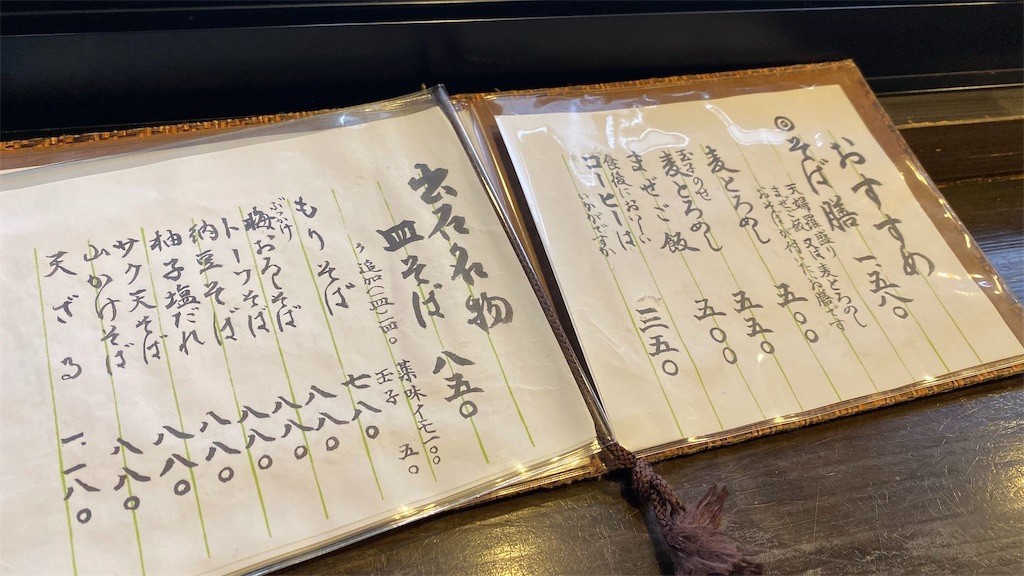 おすすめ
◎そば膳 一五八〇
天婦羅盛り又は、麦とろめし
まぜご飯
おそばが付いたお膳です
麦とろめし 五〇〇
玉子のせ
麦とろめし 五五〇
まぜご飯 五〇〇
食後においしい
コーヒーは
いかがですか 三五〇
出石名物
皿そば 八五〇
追加(一皿)一四〇
薬味イモ一〇〇
玉子 五〇
もりそば 七八〇
ぶっかけ
梅おろしそば 八八〇
トーフそば 八八〇
納豆そば 八八〇
柚子塩だれ 八八〇
サク天そば 八八〇
山かけそば 八八〇
天ざる 一一八〇